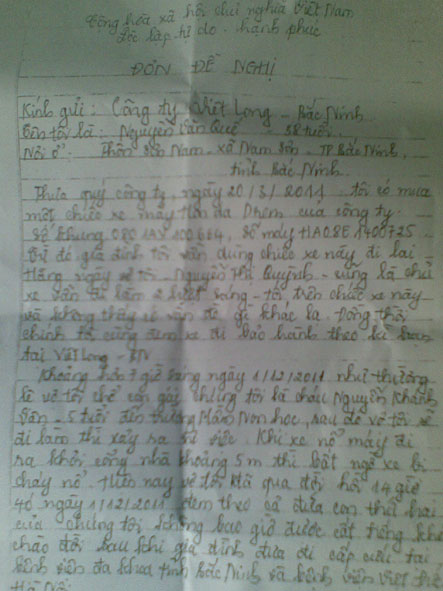 Cộng hòa xã hội chủ nghĩa Việt Nam
Độc lập tự do hạnh phúc
ĐƠN ĐỀ NGHỊ
Kính gửi: Công ty Việt Long - Bắc Ninh
Tên tôi là: Nguyễn Văn Quế - 58 tuổi
Nơi ở: Thôn Sơn Nam - xã Nam Sơn - TP Bắc Ninh,
tỉnh Bắc Ninh
Thưa quý công ty, ngày 20/3/2011 tôi có mua
một chiếc xe máy Honda Dream của công ty
số khung số máy
từ đó gia đình tôi vẫn dùng chiếc xe này đi lại
Hằng ngày vợ tôi - Nguyễn Thị Quỳnh - cũng là chủ
xe vẫn đi làm 2 lượt sáng - tối trên chiếc xe này
và không thấy có vấn đề gì khác lạ. Đồng thời
chính tôi cũng đem xe đi bảo hành theo
tại Việt Long - BN
Khoảng hơn 7 giờ sáng ngày 1/12/2011 như thường
lệ vợ tôi chở con gái chúng tôi là cháu Nguyễn Khánh
Vân - 5 tuổi đến trường Mầm Non học, sau đó vợ tôi sẽ
đi làm thì xảy ra sự việc. Khi xe nổ máy đi
ra khỏi cổng nhà khoảng 5m thì bất ngờ xe bị
cháy nổ. Hiện nay vợ tôi đã qua đời hồi 14 giờ
40 ngày 1/12/2011 đem theo cả đứa con thứ hai
của chúng tôi không bao giờ được cất tiếng khóc
chào đời sau khi gia đình đưa đi cấp cứu tại
bệnh viện đa khoa tỉnh Bắc Ninh và bệnh viện Việt Đức
Hà Nội